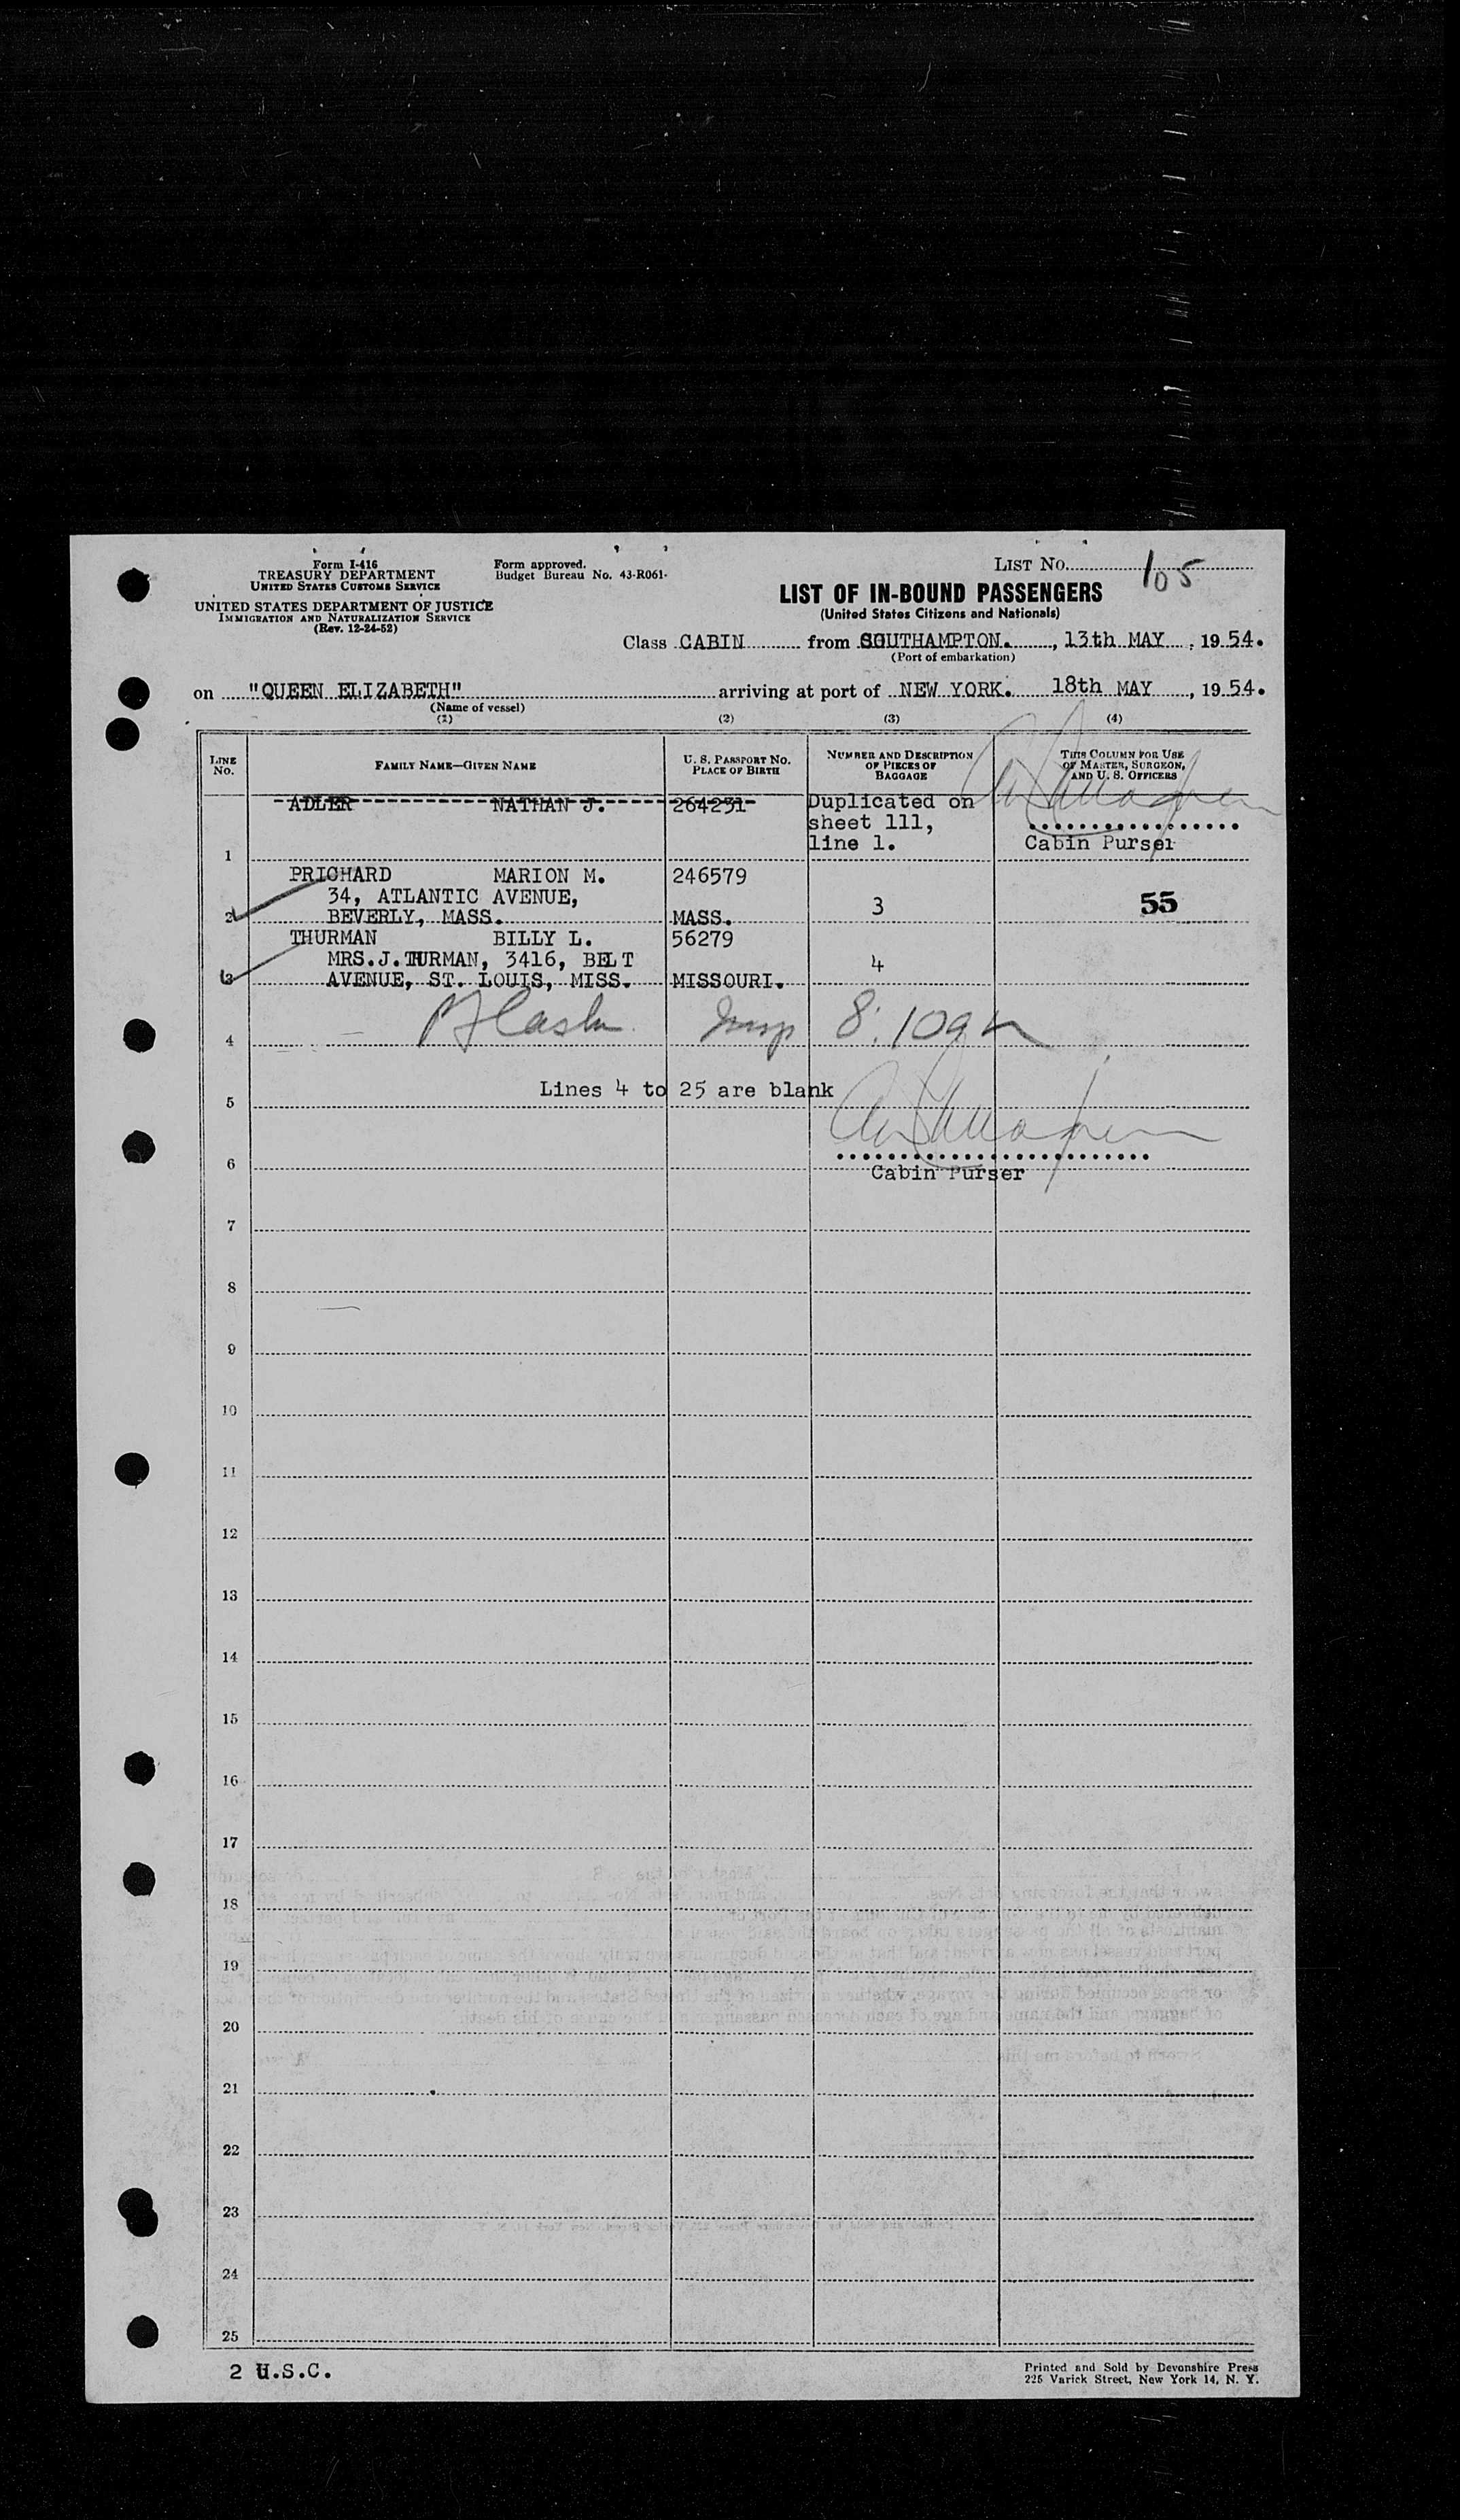 Form I-416
TREASURY DEPARTMENT
UNITED STATES CUSTOMS SERVICE
UNITED STATES DEPARTMENT OF JUSTICE
IMMIGRATION AND NATURALIZATION SERVICE
(Rev. 12-24-52)
Form approved.
Budget Bureau No. 43-R061.
LIST No. 105
LIST OF IN-BOUND PASSENGERS
(United States Citizens and Nationals)
Class CABIN from SOUTHAMPTON. , 13th MAY , 1954.
(Port of embarkation)
on "QUEEN ELIZABETH" arriving at port of NEW YORK. 18th MAY , 1954.
(Name of vessel)
(1) (2) (3) (4)
LINE No. FAMILY NAME—GIVEN NAME U. S. PASSPORT No. PLACE OF BIRTH NUMBER AND DESCRIPTION OF PIECES OF BAGGAGE THIS COLUMN FOR USE OF MASTER, SURGEON, AND U. S. OFFICERS
ADLER NATHAN J. 264231 Duplicated on
sheet 111,
1 line 1. Cabin Purser
PRICHARD MARION M. 246579
34, ATLANTIC AVENUE, 3 55
2 BEVERLY, MASS. MASS.
THURMAN BILLY L. 56279
MRS.J.THURMAN, 3416, BELT 4
3 AVENUE, ST. LOUIS, MISS. MISSOURI.
4 8:10
Lines 4 to 25 are blank
5
6
Cabin Purser
7
8
9
10
11
12
13
14
15
16
17
18
19
20
21
22
23
24
25
2 U.S.C.
Printed and Sold by Devonshire Press
225 Varick Street, New York 14, N. Y.